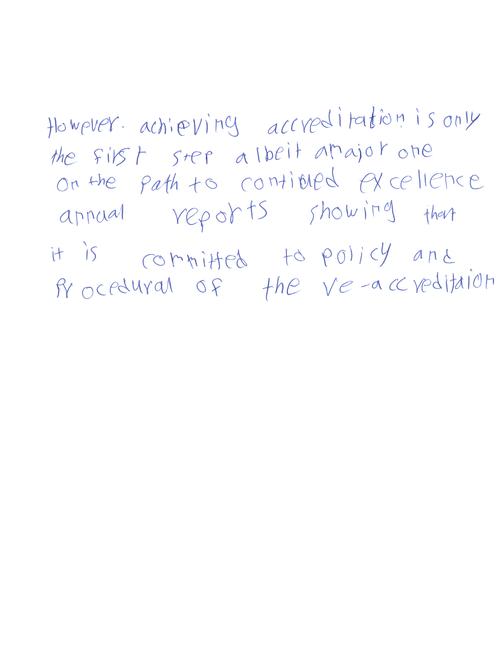 However. achieving accreditation is only
the first step albeit amajor one
on the path to contined excellence
annual reports showing that
it is committed to policy and
procedural of the re-accreditaion